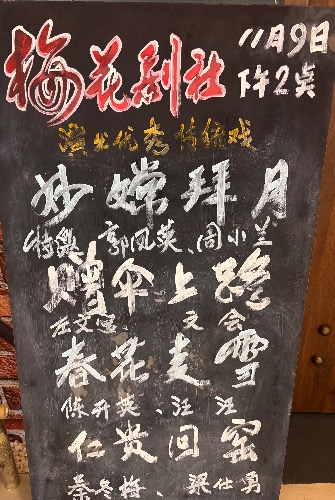 梅花剧社
11月9日
下午2点
演出优秀传统戏
妙嫦拜月
特邀 郭凤英、周小兰
赠伞上路
文会
春花走雪
陈升英、汪汪
仁贵回窑
秦冬梅、梁仕勇